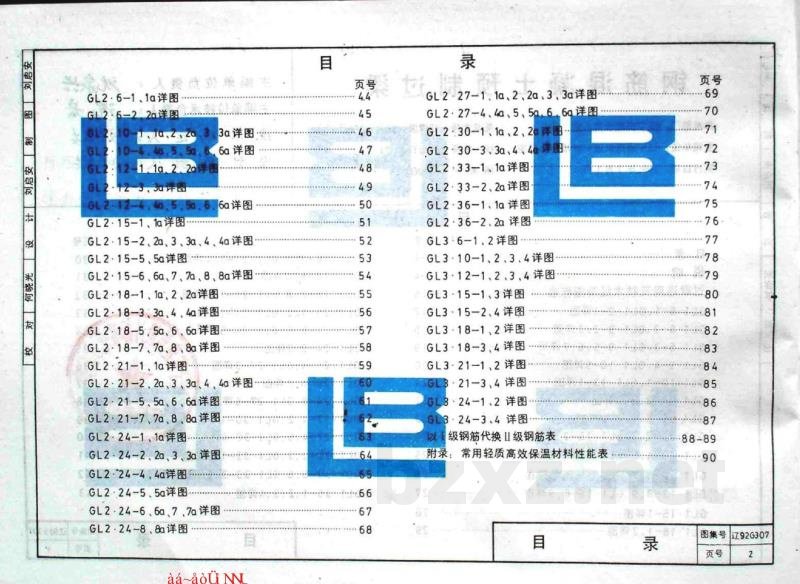 目 录
页号
GL2·6-1、1a详图 44
GL2·6-2、2a详图 45
GL2·10-1、1a、2、2a、3、3a详图 46
GL2·10-4、4a、5、5a、6、6a详图 47
GL2·12-1、1a、2、2a详图 48
GL2·12-3、3a详图 49
GL2·12-4、4a、5、5a、6、6a详图 50
GL2·15-1、1a详图 51
GL2·15-2、2a、3、3a、4、4a详图 52
GL2·15-5、5a详图 53
GL2·15-6、6a、7、7a、8、8a详图 54
GL2·18-1、1a、2、2a详图 55
GL2·18-3、3a、4、4a详图 56
GL2·18-5、5a、6、6a详图 57
GL2·18-7、7a、8、8a详图 58
GL2·21-1、1a详图 59
GL2·21-2、2a、3、3a、4、4a详图 60
GL2·21-5、5a、6、6a详图 61
GL2·21-7、7a、8、8a详图 62
GL2·24-1、1a详图 63
GL2·24-2、2a、3、3a详图 64
GL2·24-4、4a详图 65
GL2·24-5、5a详图 66
GL2·24-6、6a、7、7a详图 67
GL2·24-8、8a详图 68
页号
GL2·27-1、1a、2、2a、3、3a详图 69
GL2·27-4、4a、5、5a、6、6a详图 70
GL2·30-1、1a、2、2a详图 71
GL2·30-3、3a、4、4a详图 72
GL2·33-1、1a详图 73
GL2·33-2、2a详图 74
GL2·36-1、1a详图 75
GL2·36-2、2a详图 76
GL3·6-1、2详图 77
GL3·10-1、2、3、4详图 78
GL3·12-1、2、3、4详图 79
GL3·15-1、3详图 80
GL3·15-2、4详图 81
GL3·18-1、2详图 82
GL3·18-3、4详图 83
GL3·21-1、2详图 84
GL3·21-3、4详图 85
GL3·24-1、2详图 86
GL3·24-3、4详图 87
以Ⅰ级钢筋代换Ⅱ级钢筋表 88-89
附录：常用轻质高效保温材料性能表 90
校 对 何晓光 设 计 刘启安 制 图 刘启安
目 录
图集号 辽92G307
页号 2
bzxz.net
àá~åòÜ NNL